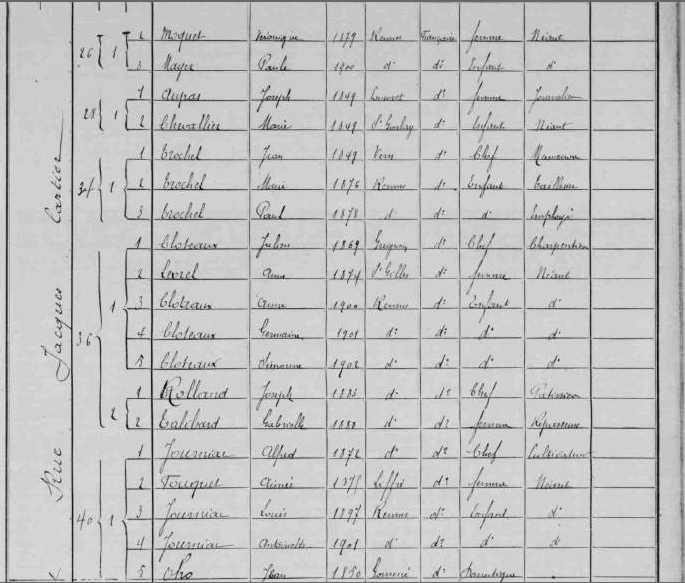 Rue Jacques Cartier
26 1 2 Moquet Véronique 1879 Rennes Française femme Néant
3 Mayer Paule 1900 do do Enfant do
28 1 1 Aupas Joseph 1849 do femme Journalier
2 Chevallier Marie 1849 do Enfant Néant
34 1 1 Trochel Jean 1849 Vern do Chef
2 Trochel Marie 1876 Rennes do Enfant Tailleuse
3 Trochel Paul 1878 d do d Employé
36 1 1 Cloteaux Julien 1869 do Chef Charpentier
2 Lorel Anna 1874 St Gilles do femme Néant
3 Cloteaux Anna 1900 Rennes do Enfant d
4 Cloteaux Germaine 1901 do do d d
5 Cloteaux Simonne 1902 d do d d
2 1 Rolland Joseph d do Chef
2 Talibard Gabrielle 1880 d do femme Repasseuse
40 1 1 Journiac Alfred 1872 do do Chef Cultivateur
2 Touquet Aimée 1875 Liffré do femme Néant
3 Journiac Louis 1897 Rennes do Enfant d
4 Journiac Antoinette 1901 d do d d
5 Jean 1850 do Domestique